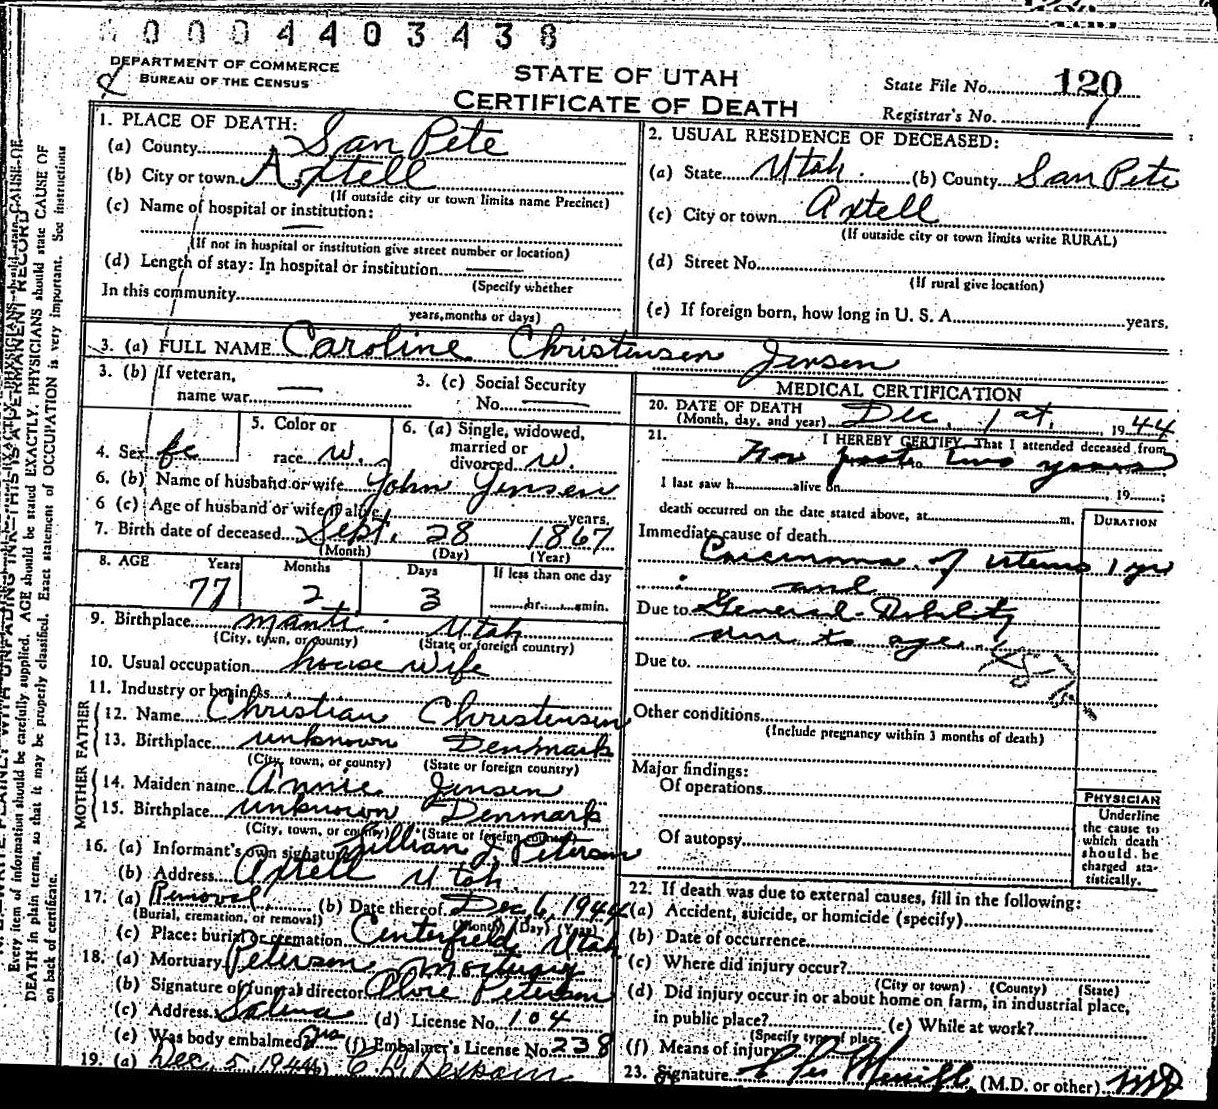 0004403438
DEPARTMENT OF COMMERCE
BUREAU OF THE CENSUS
STATE OF UTAH
CERTIFICATE OF DEATH
State File No. 120
Registrar's No. 1
1. PLACE OF DEATH:
(a) County San Pete
(b) City or town Axtell
(If outside city or town limits name Precinct)
(c) Name of hospital or institution:
(If not in hospital or institution give street number or location)
(d) Length of stay: In hospital or institution
(Specify whether
In this community
years, months or days)
2. USUAL RESIDENCE OF DECEASED:
(a) State Utah. (b) County San Pete
(c) City or town Axtell
(If outside city or town limits write RURAL)
(d) Street No.
(If rural give location)
(e) If foreign born, how long in U. S. A. years.
3. (a) FULL NAME Caroline Christensen Jensen
3. (b) If veteran,
name war
3. (c) Social Security
No.
4. Sex fe
5. Color or
race w.
6. (a) Single, widowed,
married or
divorced w.
6. (b) Name of husband or wife John Jensen
6 (c) Age of husband or wife if alive years.
7. Birth date of deceased Sept. 28 1867
(Month) (Day) (Year)
8. AGE Years Months Days If less than one day
77 2 3 hr. min.
9. Birthplace Manti Utah
(City, town, or county) (State or foreign country)
10. Usual occupation house wife
11. Industry or business
FATHER
12. Name Christian Christensen
13. Birthplace unknown Denmark
(City, town, or county) (State or foreign country)
MOTHER
14. Maiden name Annie Jensen
15. Birthplace unknown Denmark
(City, town, or county) (State or foreign country)
16. (a) Informant's own signature Lillian J. Peterson
(b) Address Axtell Utah.
17. (a) Removal (b) Date thereof Dec 6, 1944
(Burial, cremation, or removal) (Month) (Day) (Year)
(c) Place: burial or cremation Centerfield, Utah
18. (a) Mortuary Peterson Mortuary
(b) Signature of funeral director Peterson
(c) Address Salina (d) License No. 104
(e) Was body embalmed (f) Embalmer's License No. 238
19. (a) Dec. 5, 1944
MEDICAL CERTIFICATION
20. DATE OF DEATH
(Month, day, and year) Dec. 1st, 1944
21. I HEREBY CERTIFY, That I attended deceased from
For past two years
I last saw h alive on , 19 ;
death occurred on the date stated above, at m.
DURATION
Immediate cause of death
Carcinoma of uterus 1 yr
and
Due to General Debility
due to age.
Due to.
Other conditions
(Include pregnancy within 3 months of death)
Major findings:
Of operations
Of autopsy
PHYSICIAN
Underline
the cause to
which death
should be
charged sta-
tistically.
22. If death was due to external causes, fill in the following:
(a) Accident, suicide, or homicide (specify)
(b) Date of occurrence
(c) Where did injury occur?
(City or town) (County) (State)
(d) Did injury occur in or about home on farm, in industrial place,
in public place? (e) While at work?
(Specify type of place)
(f) Means of injury
23. Signature (M.D. or other) MD
WRITE PLAINLY WITH UNFADING INK—THIS IS A PERMANENT RECORD
Every item of information should be carefully supplied. AGE should be stated EXACTLY. PHYSICIANS should state CAUSE OF
DEATH in plain terms, so that it may be properly classified. Exact statement of OCCUPATION is very important. See instructions
on back of certificate.